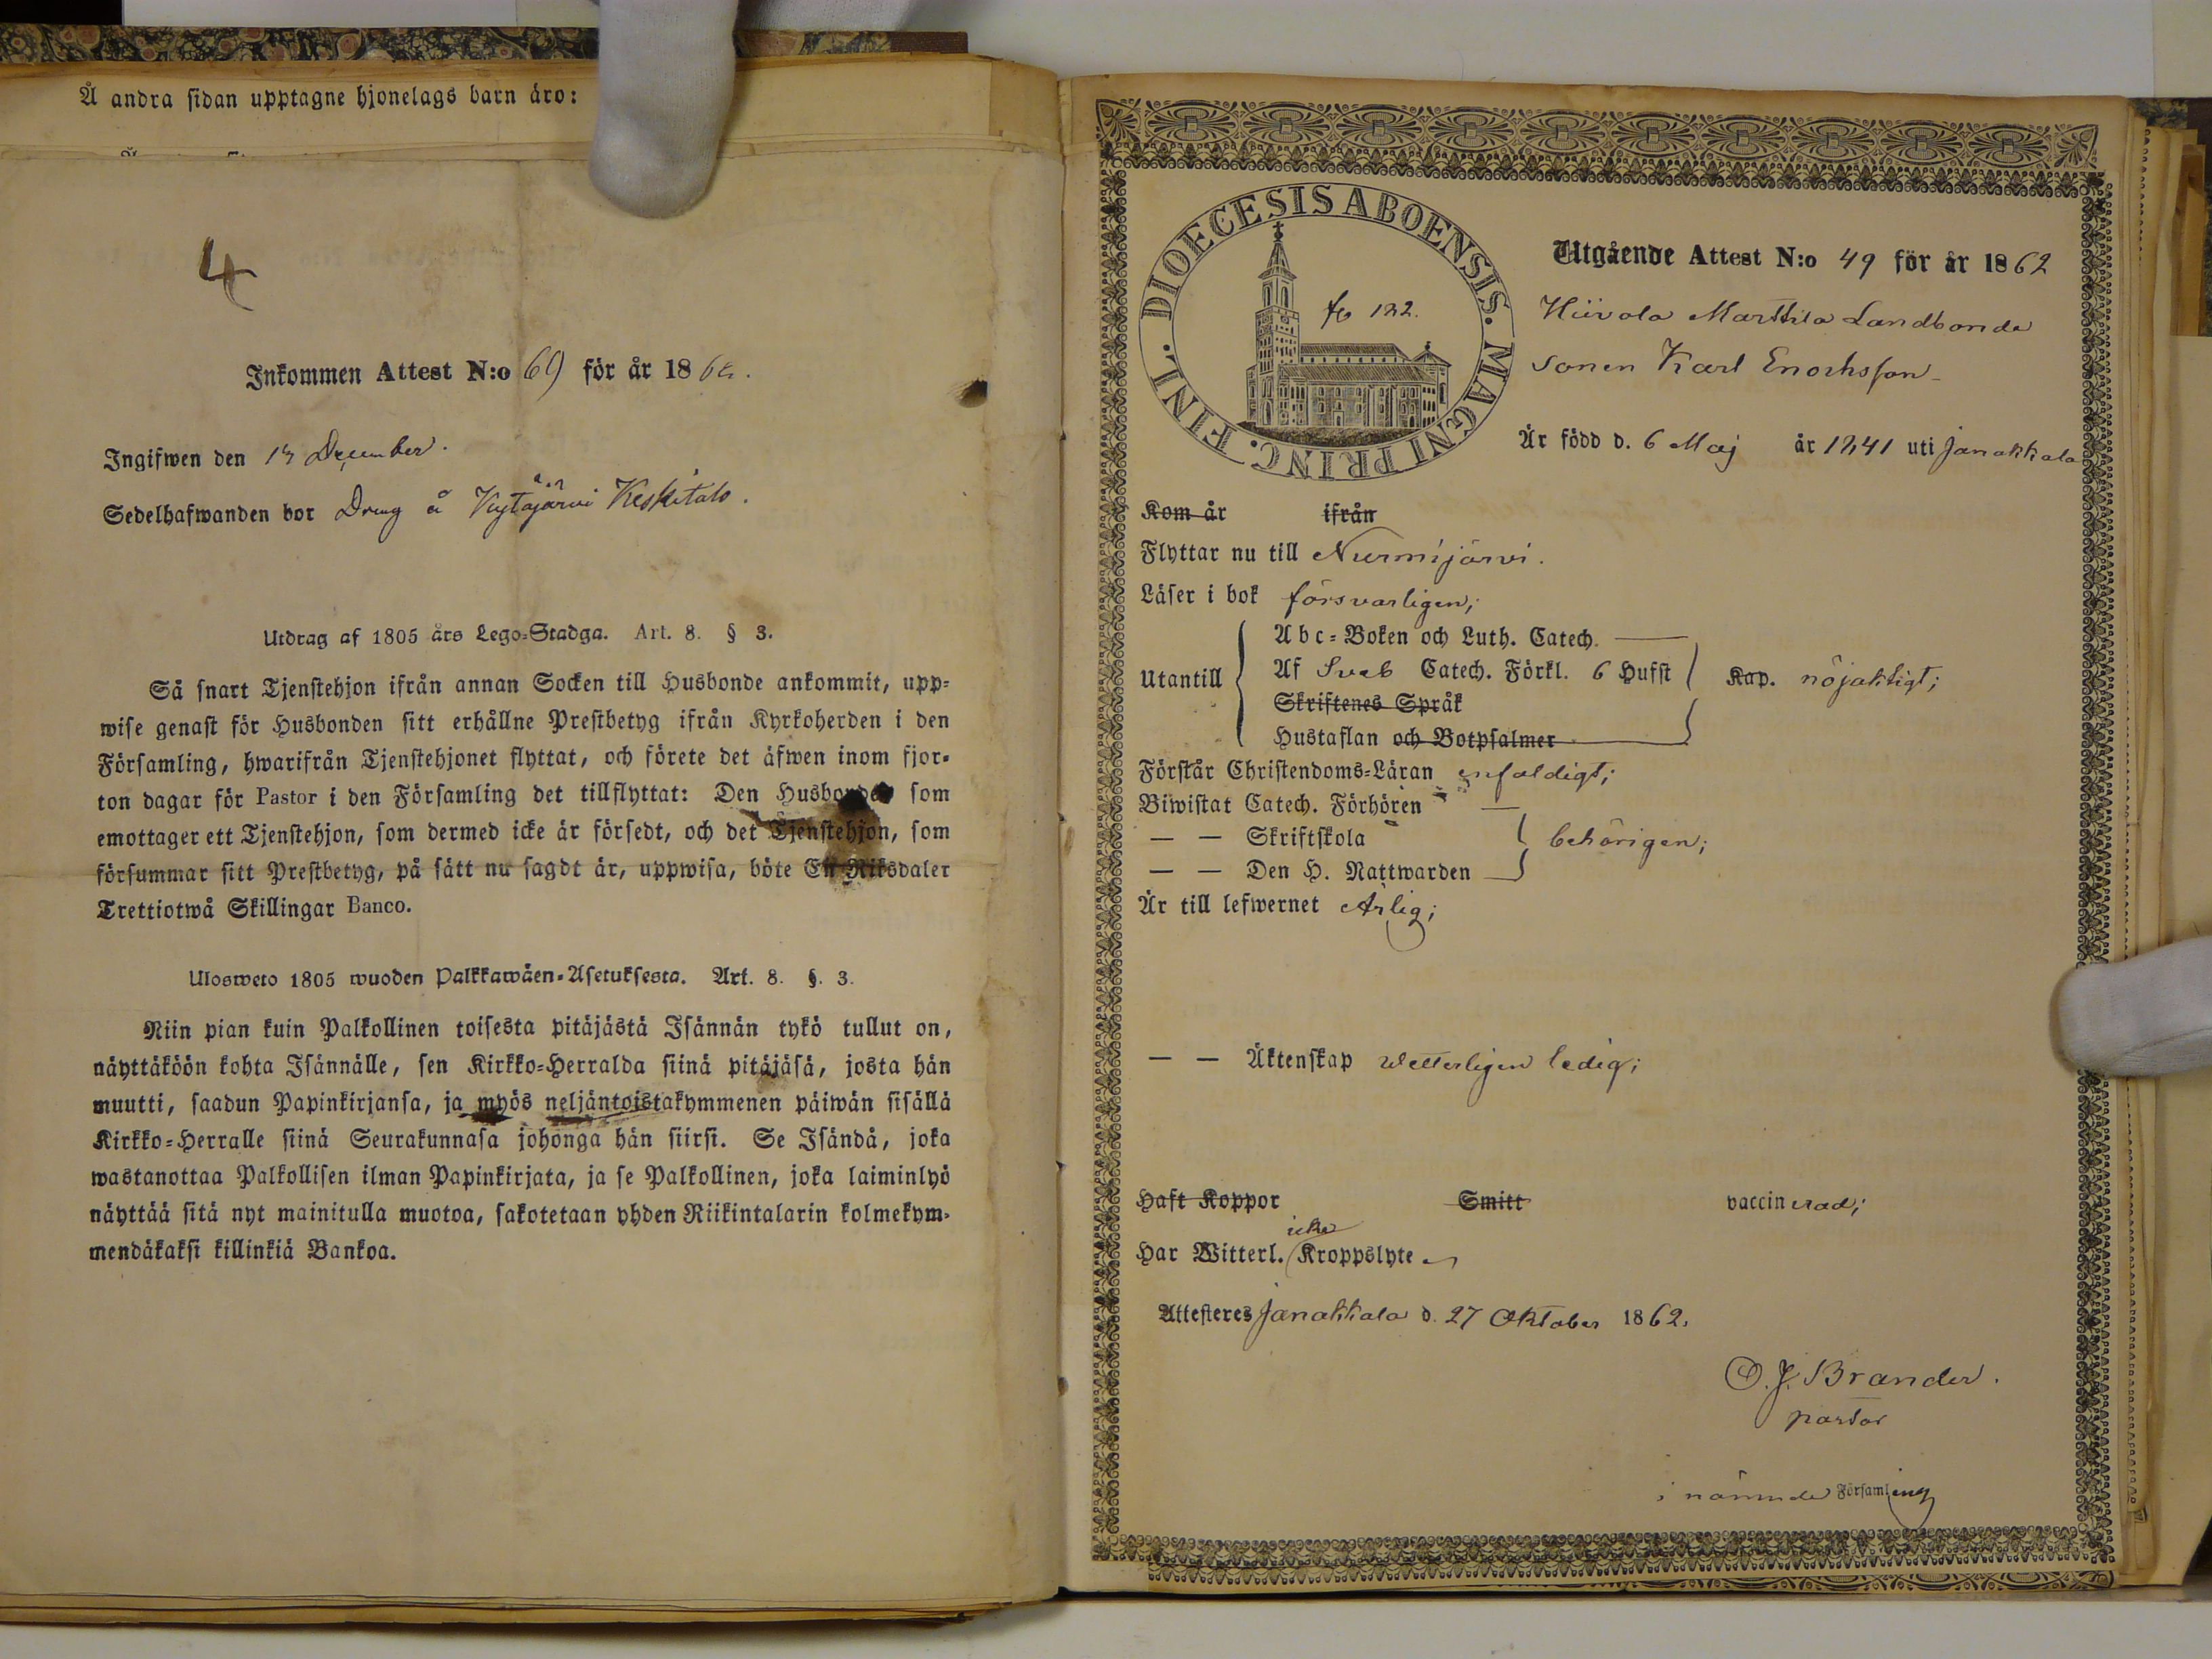 Å andra sidan upptagne hjonelags barn äro:
4
Inkommen Attest N:o 69 för år 1862.
Ingifwen den 13 December.
Sedelhafwanden bor Dreng å Kytäjärvi Keskitalo.
Utdrag af 1805 års Lego-Stadga. Art. 8. § 3.
Så snart Tjenstehjon ifrån annan Socken till Husbonde ankommit, upp-
wise genast för Husbonden sitt erhållne Prestbetyg ifrån Kyrkoherden i den
Församling, hwarifrån Tjenstehjonet flyttat, och förete det äfwen inom fjor-
ton dagar för Pastor i den Församling det tillflyttat: Den Husbonde som
emottager ett Tjenstehjon, som dermed icke är försedt, och det Tjenstehjon, som
försummar sitt Prestbetyg, på sätt nu sagdt är, uppwisa, böte En Riksdaler
Trettiotwå Skillingar Banco.
Ulosweto 1805 wuoden Palkkawäen-Asetuksesta. Art. 8. §. 3.
Niin pian kuin Palkollinen toisesta pitäjästä Isännän tykö tullut on,
näyttäköön kohta Isännälle, sen Kirkko-Herralda siinä pitäjäsä, josta hän
muutti, saadun Papinkirjansa, ja myös neljäntoistakymmenen päiwän sisällä
Kirkko-Herralle siinä Seurakunnasa johonga hän siirsi. Se Isändä, joka
wastanottaa Palkollisen ilman Papinkirjata, ja se Palkollinen, joka laiminlyö
näyttää sitä nyt mainitulla muotoa, sakotetaan yhden Riikintalarin kolmekym-
mendäkaksi killinkiä Bankoa.
DIOECESIS ABOENSIS. MAGNI PRINC. FINL.
fo 132.
Utgående Attest N:o 49 för år 1862
Hiivola Marttila Landbonde
sonen Karl Enochsson
Är född d. 6 Maj år 1841 uti Janakkala
Kom år ifrån
Flyttar nu till Nurmijärvi.
Läser i bok försvarligen;
Utantill
Abc-Boken och Luth. Catech.
Af Sveb Catech. Förkl. 6 Hufst Kap. nöjaktigt;
Skriftenes Språk
Hustaflan och Botpsalmer
Förstår Christendoms-Läran enfaldigt;
Biwistat Catech. Förhören
— — Skriftskola behörigen;
— — Den H. Nattwarden
Är till lefwernet Ärlig;
— — Äktenskap Wetterligen ledig;
Haft Koppor Smitt vaccinerad;
icke
Har Witterl. Kroppslyte
Attesteres Janakkala d. 27 Oktober 1862.
O. J. Brander.
pastor
i nämnde Församling